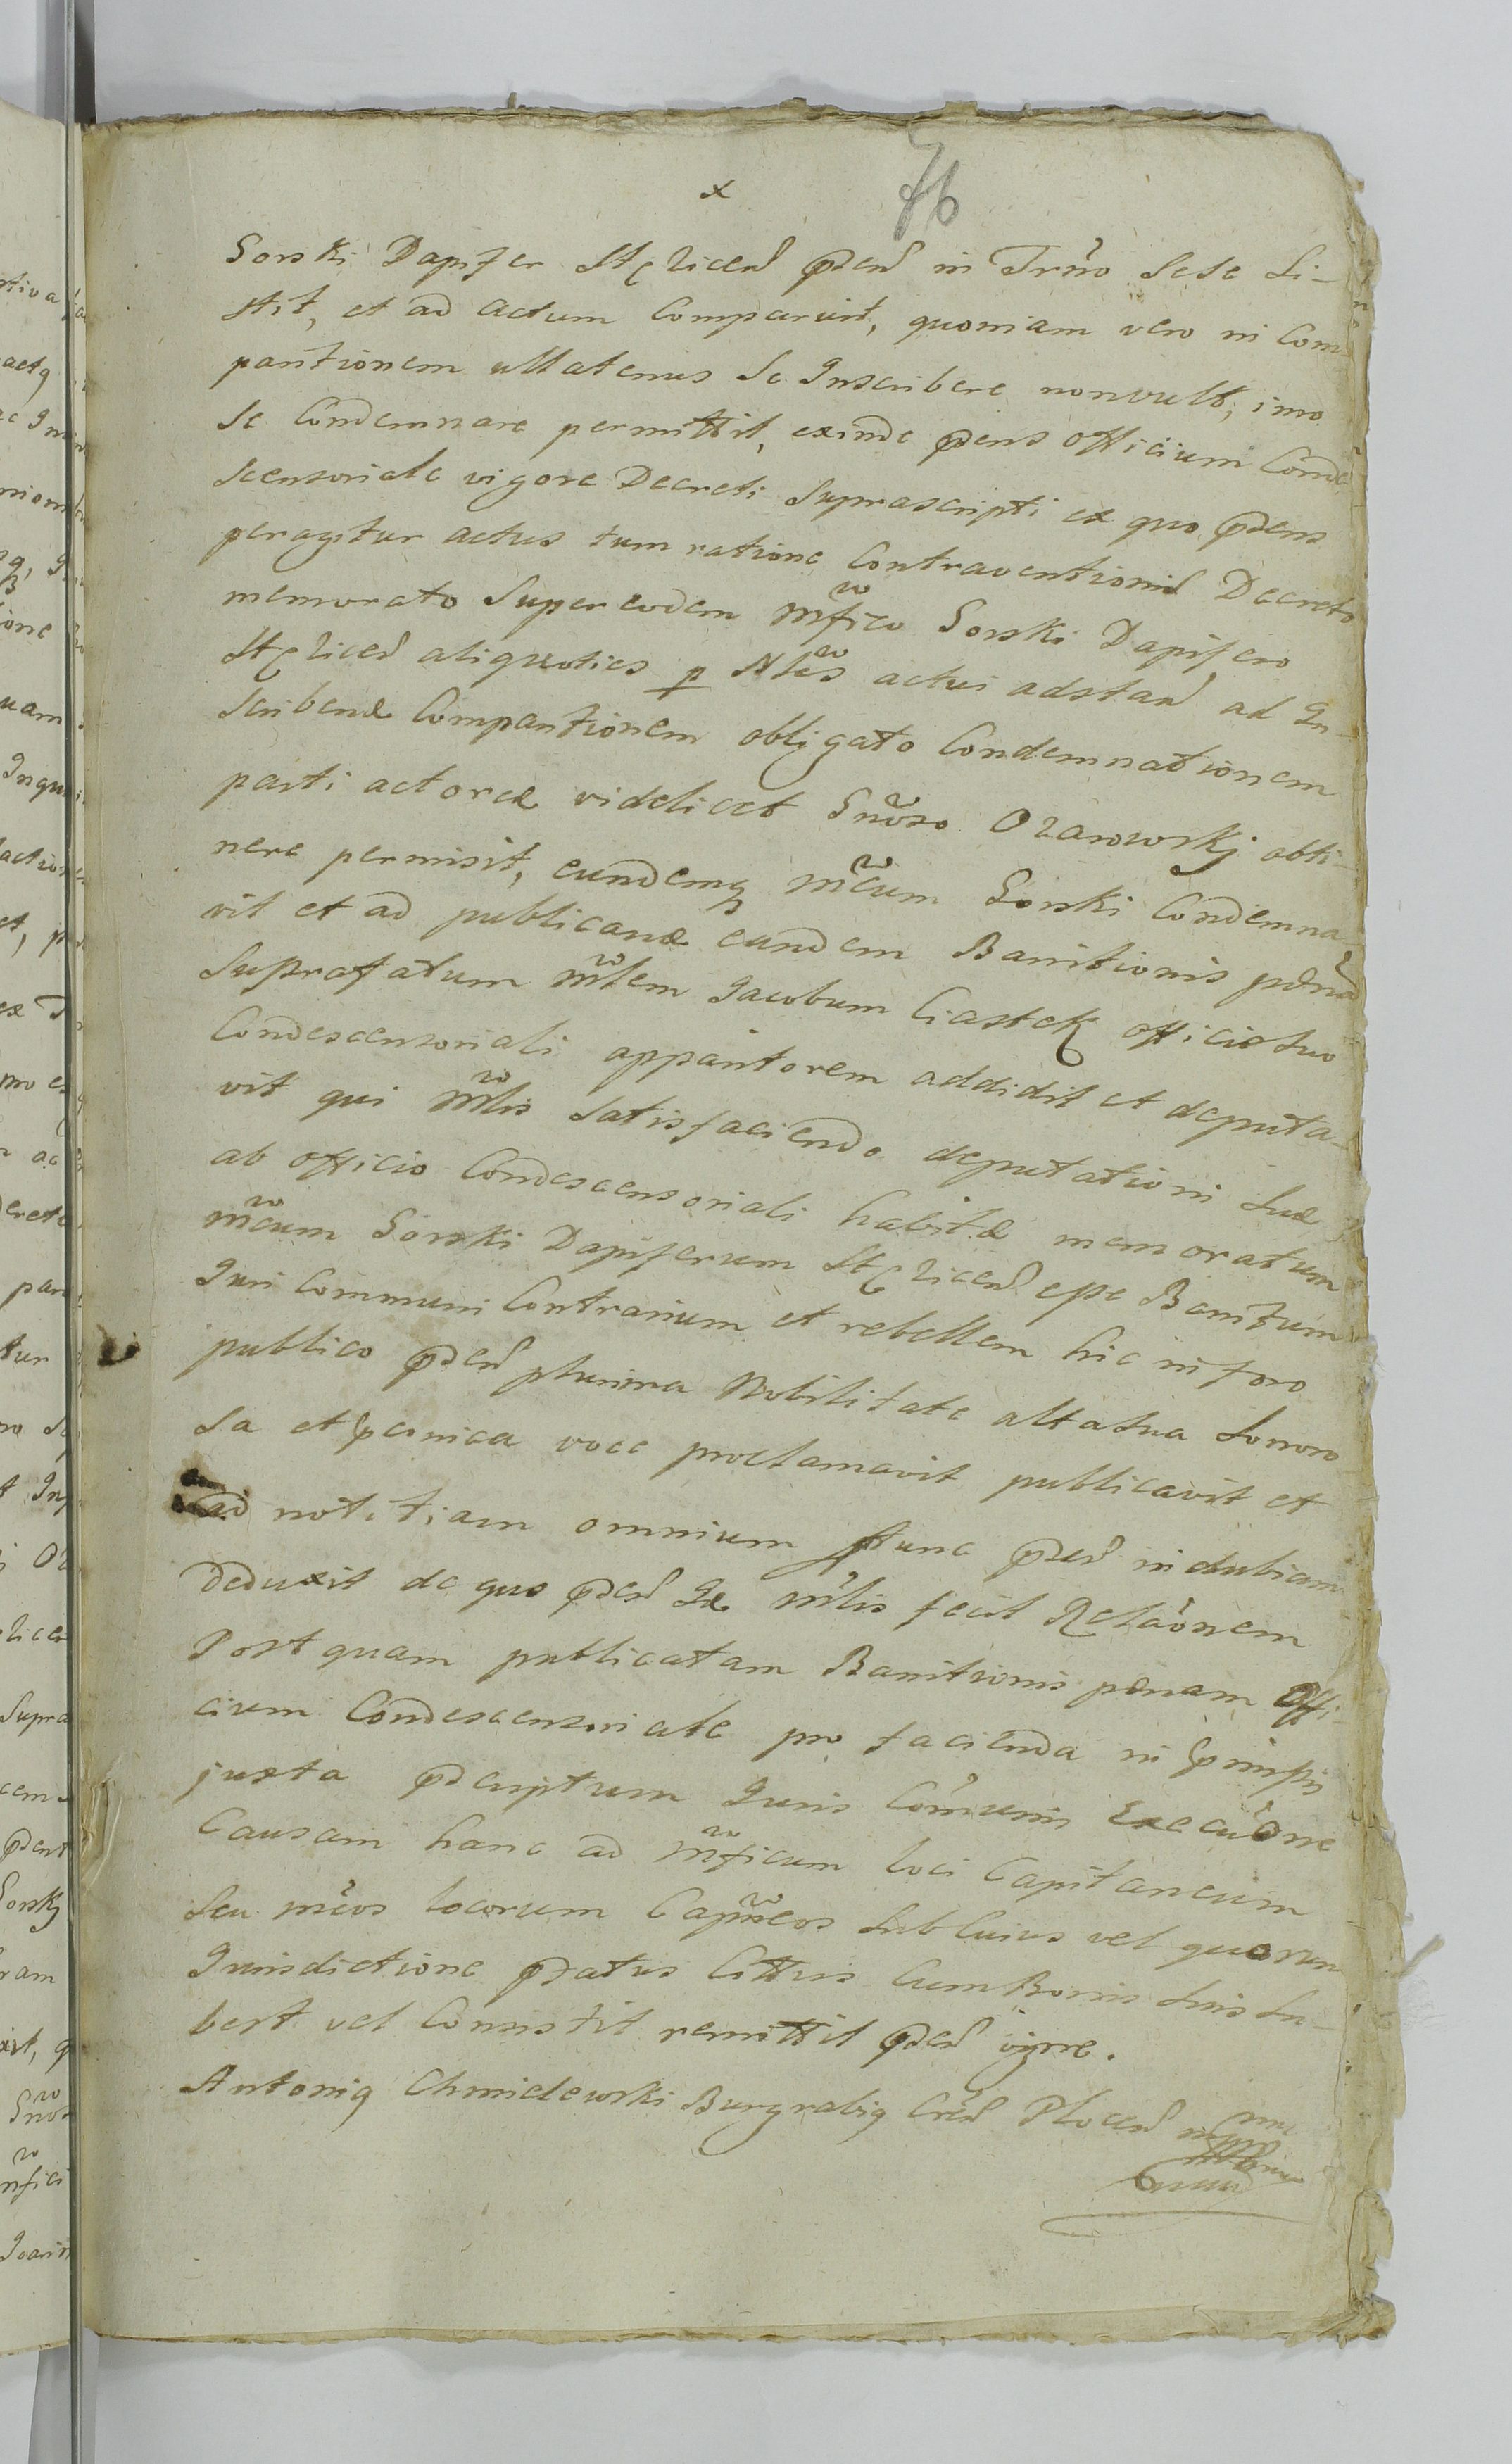 x 76
Gorski Dapifer Stęzicens̃ p̃dens̃ in Trñno Sese Si-
stit, et ad actum Comparuit, quoniam vero in Com-
partionem ullatenus Se Inscribere nonvult, imo
Se Condemnare permittit, exinde p̃dens officium Conde
Scensoriale vigore Decreti Suprascripti ex quo p̃dens
peragitur actus tum ratione Contraventionis Decreto
memorato Super eodem Mfico Gorski Dapifero
Stęzicens̃ aliquoties p Nles actui adstan̄ ad In-
scribend Compartionem obligato Condemnationem
parti actoreæ videlicet Gnoso Ozarowskj obti-
nere permisit, eundemq Mcum Gorski Condemna-
vit et ad publicand eundem Banitionis pæna
Suprafatum Mlem Jacobum Ciastek officio suo
Condescensoriali apparitorem addidit et deputa-
vit qui Mlis Satisfaciendo deputationi Suæ
ab officio Condescensoriali habitæ memoratum
Mcum Gorski Dapiferum Stęzicens̃ esse Banitum
Juri Communi Contrarium et rebellem hic in foro
publico p̃dens̃ plurima Nobilitate alta Sua Sonoro
Sa et voce proclamavit publicavit et
ad notitiam omnium tunc p̃dens̃ indubiam
Deduxit de quo p̃dens̃ Mlis fecit Relãonem
Postquam publicatam Banitionis pænam Offi-
cium Condescensoriale pro facienda in
juxta p̃dscriptum Juris Cõmunis Execuõne
Causam hanc ad Mficum loci Capitaneum
Seu Mcos locorum Capneos Sub Cuius vel quorum
Jurisdictione p̃datus Cittus Cum Bonis Suis Su-
best vel Consistit remittit p̃dens̃ vigore.
Antonig Chmielewski Burgrabig Crens̃ Plocens̃